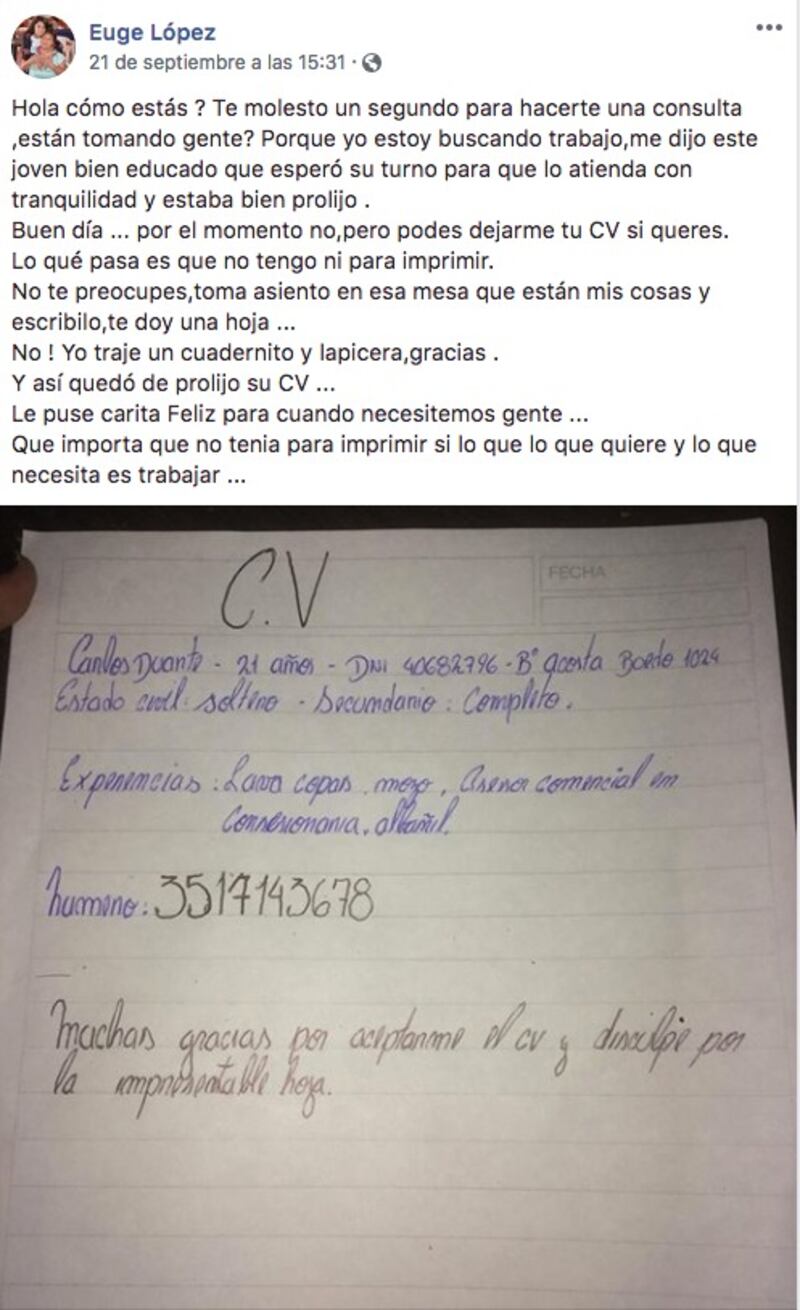 Euge López
21 de septiembre a las 15:31 ·
Hola cómo estás ? Te molesto un segundo para hacerte una consulta
,están tomando gente? Porque yo estoy buscando trabajo,me dijo este
joven bien educado que esperó su turno para que lo atienda con
tranquilidad y estaba bien prolijo .
Buen día ... por el momento no,pero podes dejarme tu CV si queres.
Lo qué pasa es que no tengo ni para imprimir.
No te preocupes,toma asiento en esa mesa que están mis cosas y
escribilo,te doy una hoja ...
No ! Yo traje un cuadernito y lapicera,gracias .
Y así quedó de prolijo su CV ...
Le puse carita Feliz para cuando necesitemos gente ...
Que importa que no tenia para imprimir si lo que lo que quiere y lo que
necesita es trabajar ...
C.V
FECHA
Carlos Duarte - 21 años - DNI 40682796 - B° acosta Boedo 1024
Estado civil: soltero - Secundario : Completo.
Experiencias : Lava copas, mozo, Asesor comercial en
Consecionaria, albañil.
humero: 3517143678
Muchas gracias por aceptarme el cv y disculpe por
la impresentable hoja.